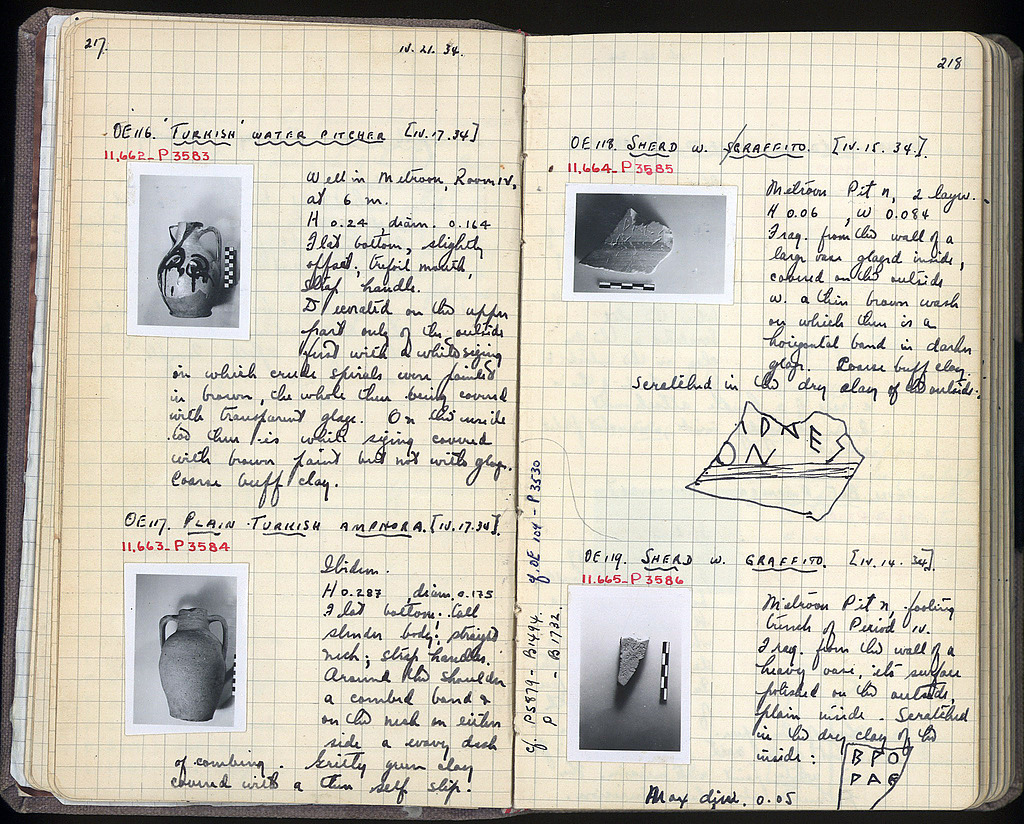 217.
IV. 21. 34.
OE 116. 'TURKISH' WATER PITCHER [IV.17.34]
11,662 - P 3583
Well in Metroon, Room IV,
at 6 m.
H 0.24, diam. 0.164
Flat bottom, slightly
offset; trefoil mouth,
strap handle.
Decorated on the upper
part only of the outside
first with a white sizing
on which crude spirals were painted
in brown, the whole then being covered
with transparent glaze. On the inside
too there is white sizing covered
with brown paint but not with glaze.
Coarse buff clay.
OE 117. PLAIN TURKISH AMPHORA. [IV.17.34].
11,663 - P 3584
Ibidem.
H 0.287, diam. 0.175
Flat bottom; tall
slender body; straight
neck; strap handles.
Around the shoulder
a combed band &
on the neck on either
side a wavy dash
of combing. Gritty green clay
covered with a thin self slip.
cf. P 5879 - B 1494. cf. OE 104 - P 3530
P - B 1732.
218
OE 118. SHERD W. GRAFFITO. [IV.15.34].
11,664 - P 3585
Metroon Pit n, 2 layer.
H 0.06, W 0.084
Frag. from the wall of a
large vase glazed inside,
covered on the outside
w. a thin brown wash
on which there is a
horizontal band in darker
glaze. Coarse buff clay.
Scratched in the dry clay of the outside:
ΔDNES
ON
OE 119. SHERD W. GRAFFITO. [IV.14.34].
11,665 - P 3586
Metroon Pit n, footing
trench of Period IV.
Frag. from the wall of a
heavy vase, its surface
polished on the outside,
plain inside. Scratched
in the dry clay of the
inside:
BPO
PAE
Max dim. 0.05